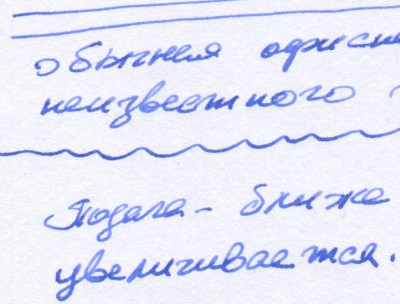 обычная офисна
неизвестного
Подача - ближе
увеличивается.